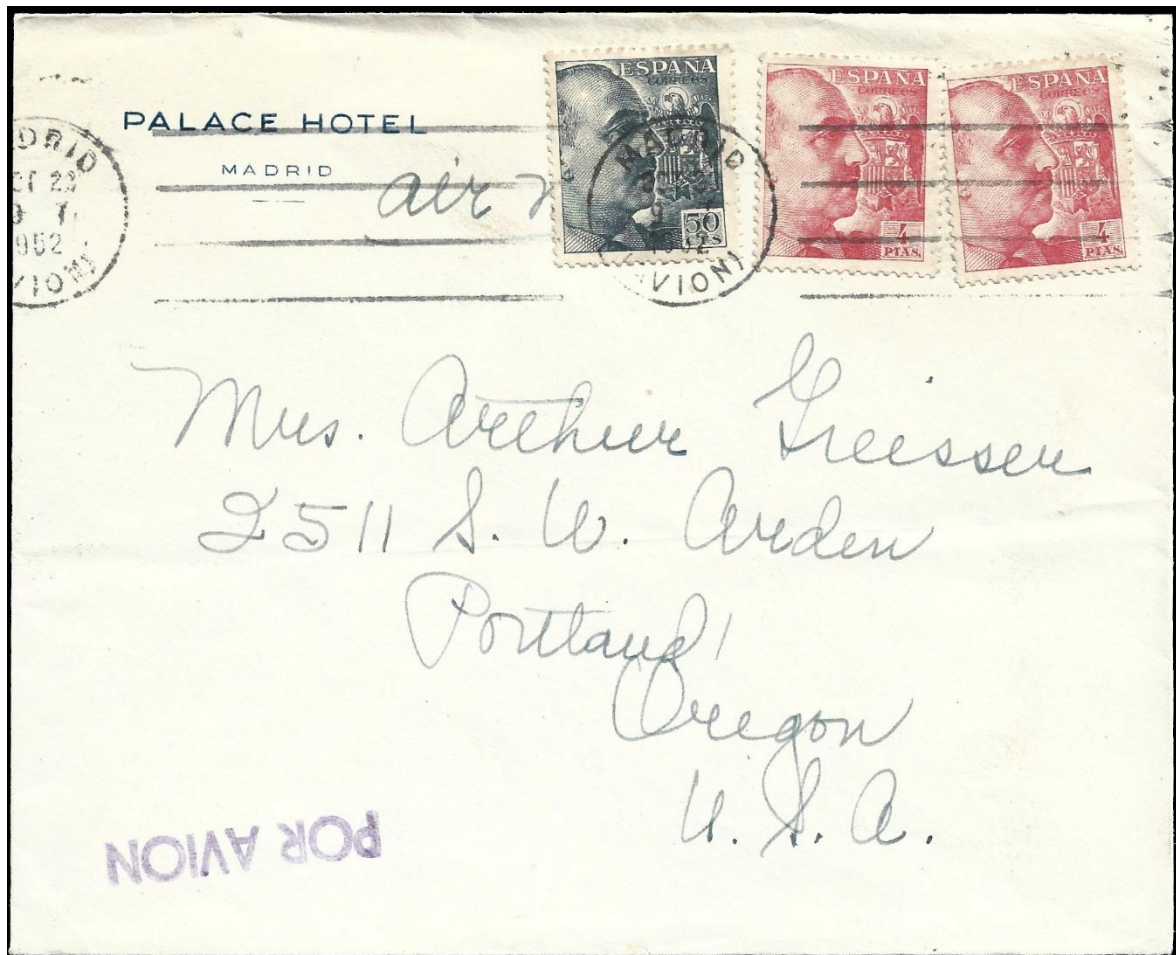 PALACE HOTEL
MADRID
air
MADRID
OCT 23
1952
(AVION)
ESPAÑA
CORREOS
50
CTS
MADRID
1952
(AVION)
ESPAÑA
CORREOS
4
PTAS.
ESPAÑA
CORREOS
4
PTAS.
Mrs. Arthur Greisser
2511 S. W. Arden
Portland
Oregon
U. S. A.
POR AVION